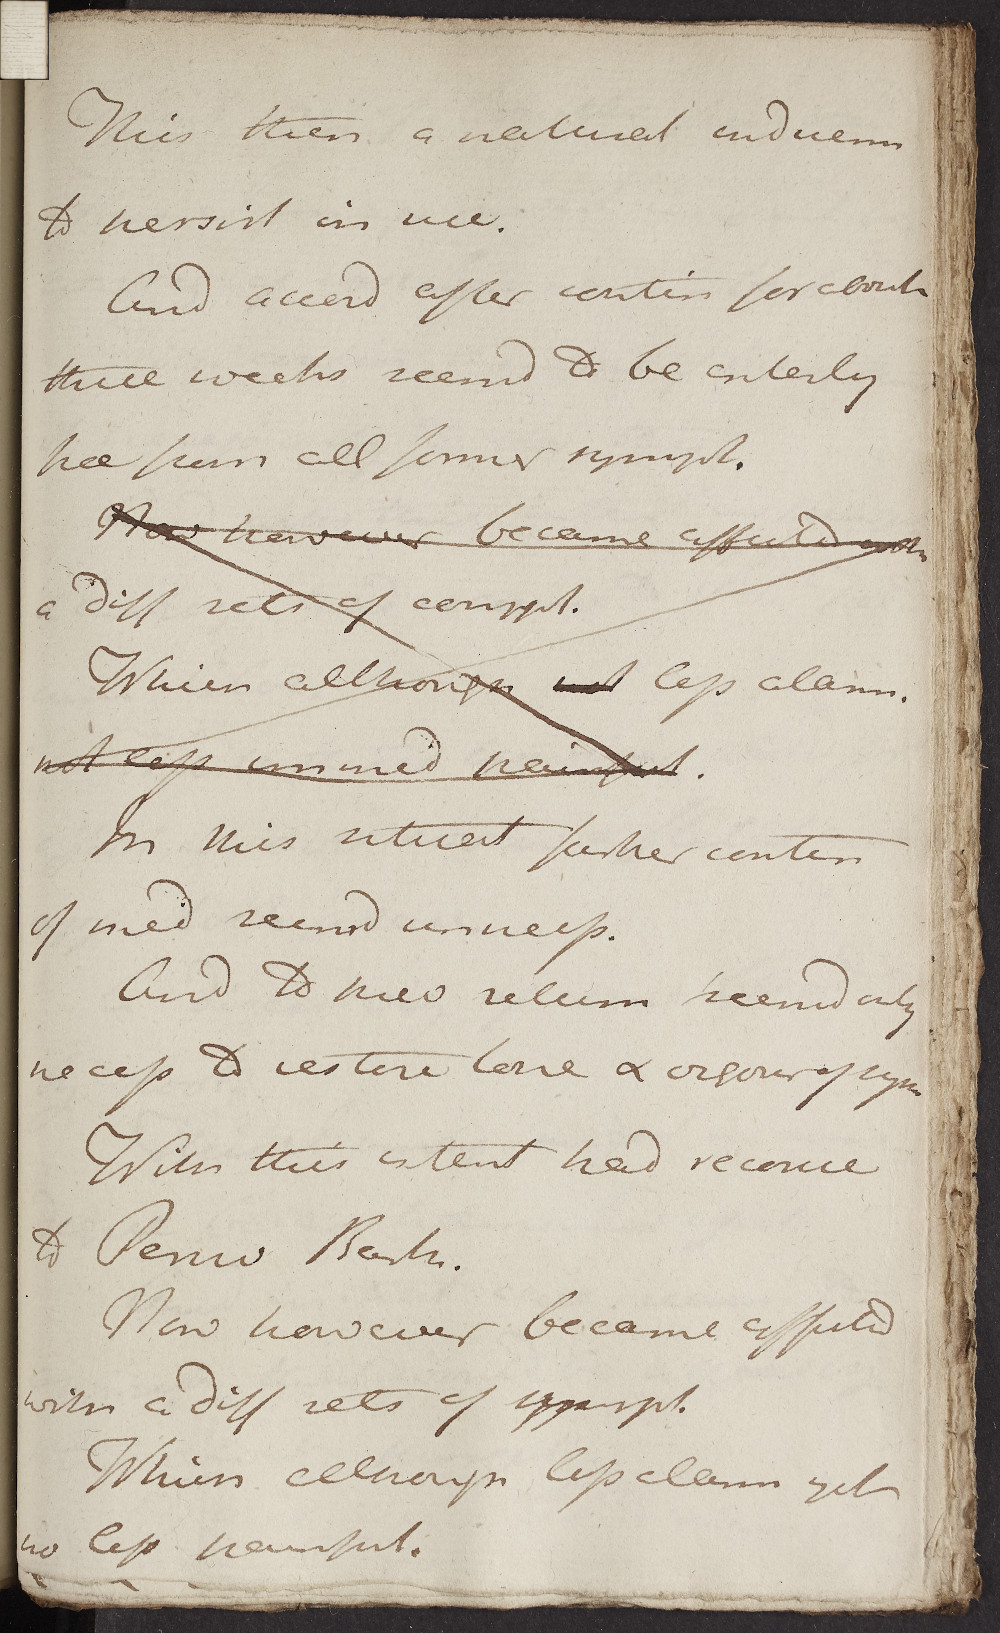 This then a natural inducem
to persist in use.
And accord after contin for about
three weeks seemd to be enterly
free from all former sympt.
Now however became affected with
a diff sets of compt.
Which although not less alarm.
not less immed painful.
In this situat further contin
of med seemd unness.
And to prev return seemd only
necess to restore tone & vigour of sym
With this intent had recourse
to Peruv Bark.
Now however became affected
with a diff sets of sympt.
Which although less alarm yet
no less painful.